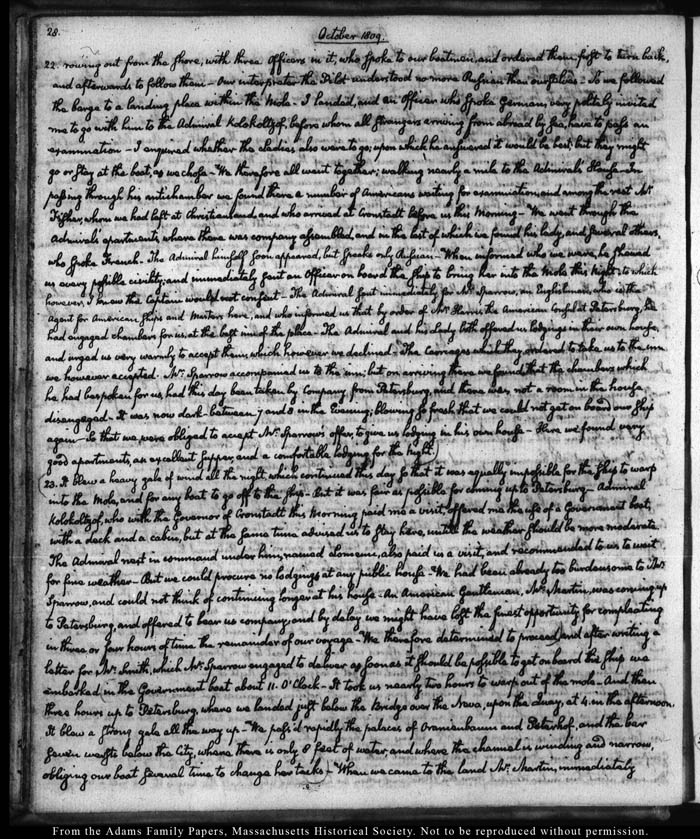 28.
October 1809.
22. rowing out from the shore, with three Officers in it, who spoke to our boatmen, and ordered them first to turn back,
and afterwards to follow them — Our interpreter the Pilot understood no more Russian than ourselves — So we followed
the barge to a landing place within the Mole — I landed, and an Officer who spoke German, very politely invited
me to go with him to the Admiral Kolokoltzof, before whom all Strangers arriving from abroad by Sea, have to pass an
examination — I enquired whether the Ladies also were to go; upon which he answered it would be best, but they might
go or stay at the boat, as we chose — We therefore all went together; walking nearly a mile to the Admiral's House — In
passing through his antichamber we found there a number of Americans waiting for examination, and among the rest Mr.
Fisher, whom we had left at Christiansand, and who arrived at Cronstadt before us this Morning — We went through the
Admiral's apartments where there was company assembled, and in the last of which we found his Lady, and several others,
who spoke French. The Admiral himself soon appeared, but speaks only Russian — When informed who we were, he shewed
us every possible civility; and immediately sent an Officer on board the Ship to bring her into the Mole this Night: to which
however, I knew the Captain would not consent — The Admiral sent immediately for Mr. Sparrow, an Englishman, who is the
Agent for American Ships and Masters here, and who informed us that by order of Mr. Harris, the American Consul at Petersburg, he
had engaged chambers for us, at the best inn of the place — The Admiral and his Lady both offered us lodgings in their own house,
and urged us very warmly to accept them, which however we declined. The Carriages which they ordered to take us to the inn
we however accepted. Mr. Sparrow accompanied us to the inn; but on arriving there we found that the chambers which
he had bespoken for us had this day been taken by Company from Petersburg, and there was not a room in the house,
disengaged — It was now dark — between 7 and 8 in the Evening; blowing so fresh that we could not get on board our Ship
again — So that we were obliged to accept Mr. Sparrow's offer, to give us lodging in his own house — Here we found very
good apartments, an excellent supper, and a comfortable lodging for the Night.
23. It blew a heavy gale of wind all the night, which continued this day so that it was equally impossible for the Ship to warp
into the Mole, and for any boat to go off to the Ship — But it was fair as possible for coming up to Petersburg — Admiral
Kolokoltzof, who with the Governor of Cronstadt this Morning paid me a visit, offered me the use of a Government boat,
with a deck and a cabin, but at the same time advised us to stay here, untill the weather should be more moderate.
The Admiral next in command under him, named also paid us a visit, and recommended to us to wait
for fine weather — But we could procure no lodgings at any public house — We had been already too burdensome to Mr.
Sparrow, and could not think of continuing longer at his house — An American Gentleman, Mr. Martin, was coming up
to Petersburg, and offered to bear us company; and by delay we might have lost the finest opportunity for completing
in three or four hours of time the remainder of our voyage — We therefore determined to proceed, and after writing a
letter for Mr. Smith, which Mr. Sparrow engaged to deliver as soon as it should be possible to get on board the Ship we
embarked in the Government boat about 11. O'Clock — It took us nearly two hours to warp out of the mole. And then
three hours up to Petersburg, where we landed just below the Bridge over the Neva, upon the Quay, at 4. in the afternoon.
It blew a strong gale all the way up — We pass'd rapidly the palaces of Oranienbaum and Peterhof, and the bar
seven below the City, where there is only 8 feet of water, and where the channel is winding and narrow,
obliging our boat several time to change her tacks — When we came to the land Mr. Martin, immediately
From the Adams Family Papers, Massachusetts Historical Society. Not to be reproduced without permission.